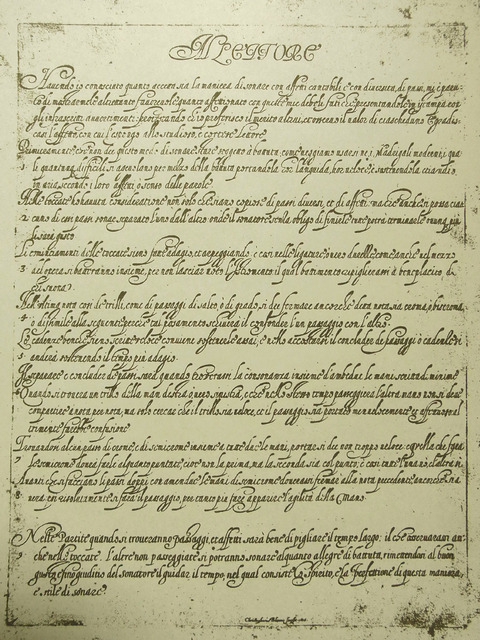 AL LETTORE
Hauendo io conosciuto quanto accetta sia la maniera di sonare con affetti cantabili e con diuersità di passi, mi è paru-
to di mostrarmele altretanto fauoreuole quanto affettionato con queste mie deboli fatiche presentandole in istampa con
gli infrascritti auuertimenti: protestando ch'io preferisco il merito altrui, et osseruo il ualor di ciascheduno. E gradis-
casi l'affetto, con cui l'espongo allo studioso, e cortese Lettore.
Primieramente, che non dee questo modo di sonare stare soggetto à battuta, come ueggiamo usarsi ne i Madrigali moderni, i qua-
1. li quantunque difficili si ageuolano per mezzo della battuta portandola hor languida, hor ueloce, e sostenendola etiandio
in aria, secondo i loro affetti, ò senso delle parole.
Nelle toccate ho hauuta consideratione non solo che siano copiose di passi diuersi, et di affetti, ma che anche si possa ciascu-
2. cuno di essi passi sonar separato l'uno dall'altro onde il sonatore senza obligo di finirle tutte potrà terminarle ouunque più
li sarà gusto.
Li cominciamenti delle toccate sieno fatte adagio, et arpeggiando: e così nelle ligature, ò uero durezze, come anche nel mezzo
3. del'opera si batteranno insieme, per non lasciar uoto l'Istromento: il qual battimento ripiglierassi à beneplacito di
chi suona.
Nell'ultima nota così de trilli, come di passaggi di salto, ò di grado, si dee fermare ancorche detta nota sia croma, ò biscroma,
4. ò dissimile alla seguente: perche tal posamento schiuerà il confonder l'un passaggio con l'altro.
Le cadenze benche sieno scritte veloce conuiene sostenerle assai, e nello accostarsi il concluder de passaggi ò cadenze si
5. anderà sostenendo il tempo più adagio.
Il separare e concluder de passi sarà quando trouerassi la consonanza insieme d'ambedue le mani scritta di minime
6. Quando si trouerà un trillo della man destra, ò uero sinistra, e che nello stesso tempo passeggierà l'altra mano non si deue
compartire à nota per nota, ma solo cercar che il trillo sia ueloce, et il passaggio sia portato men uelocemente et affettuoso: al
trimente farebbe confusione.
Trouandosi alcun passo di crome, e di semicrome insieme a tutte due le mani, portar si dee non troppo ueloce: e quella che farà
7. le semicrome dourà farle alquanto puntate, cioè non la prima, ma la seconda sia col punto; e così tutte l'una nò, e l'altra si.
Auanti che si facciano li passi doppi con amendue le mani di semicrome douerassi fermar alla nota precedente, ancorche sia
8. nera: poi risolutamente si farà il passaggio, per tanto più fare apparire l'agilità della mano.
Nelle Partite quando si troueranno passaggi, et affetti sarà bene di pigliare il tempo largo; il che osseruarassi an-
9. che nelle toccate. L'altre non passeggiate si potranno sonare alquanto allegre di battuta, rimettendosi al buon
gusto e fino giuditio del sonatore il guidar il tempo; nel qual consiste lo spirito, e la perfettione di questa maniera,
e stile di sonare.